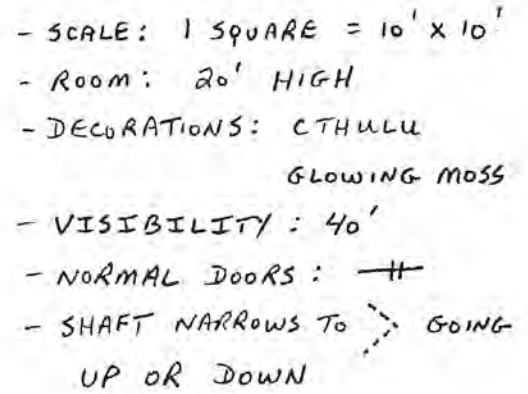 - SCALE: 1 SQUARE = 10' X 10'
- ROOM: 20' HIGH
- DECORATIONS: CTHULU
GLOWING MOSS
- VISIBILITY: 40'
- NORMAL DOORS:
- SHAFT NARROWS TO GOING
UP OR DOWN